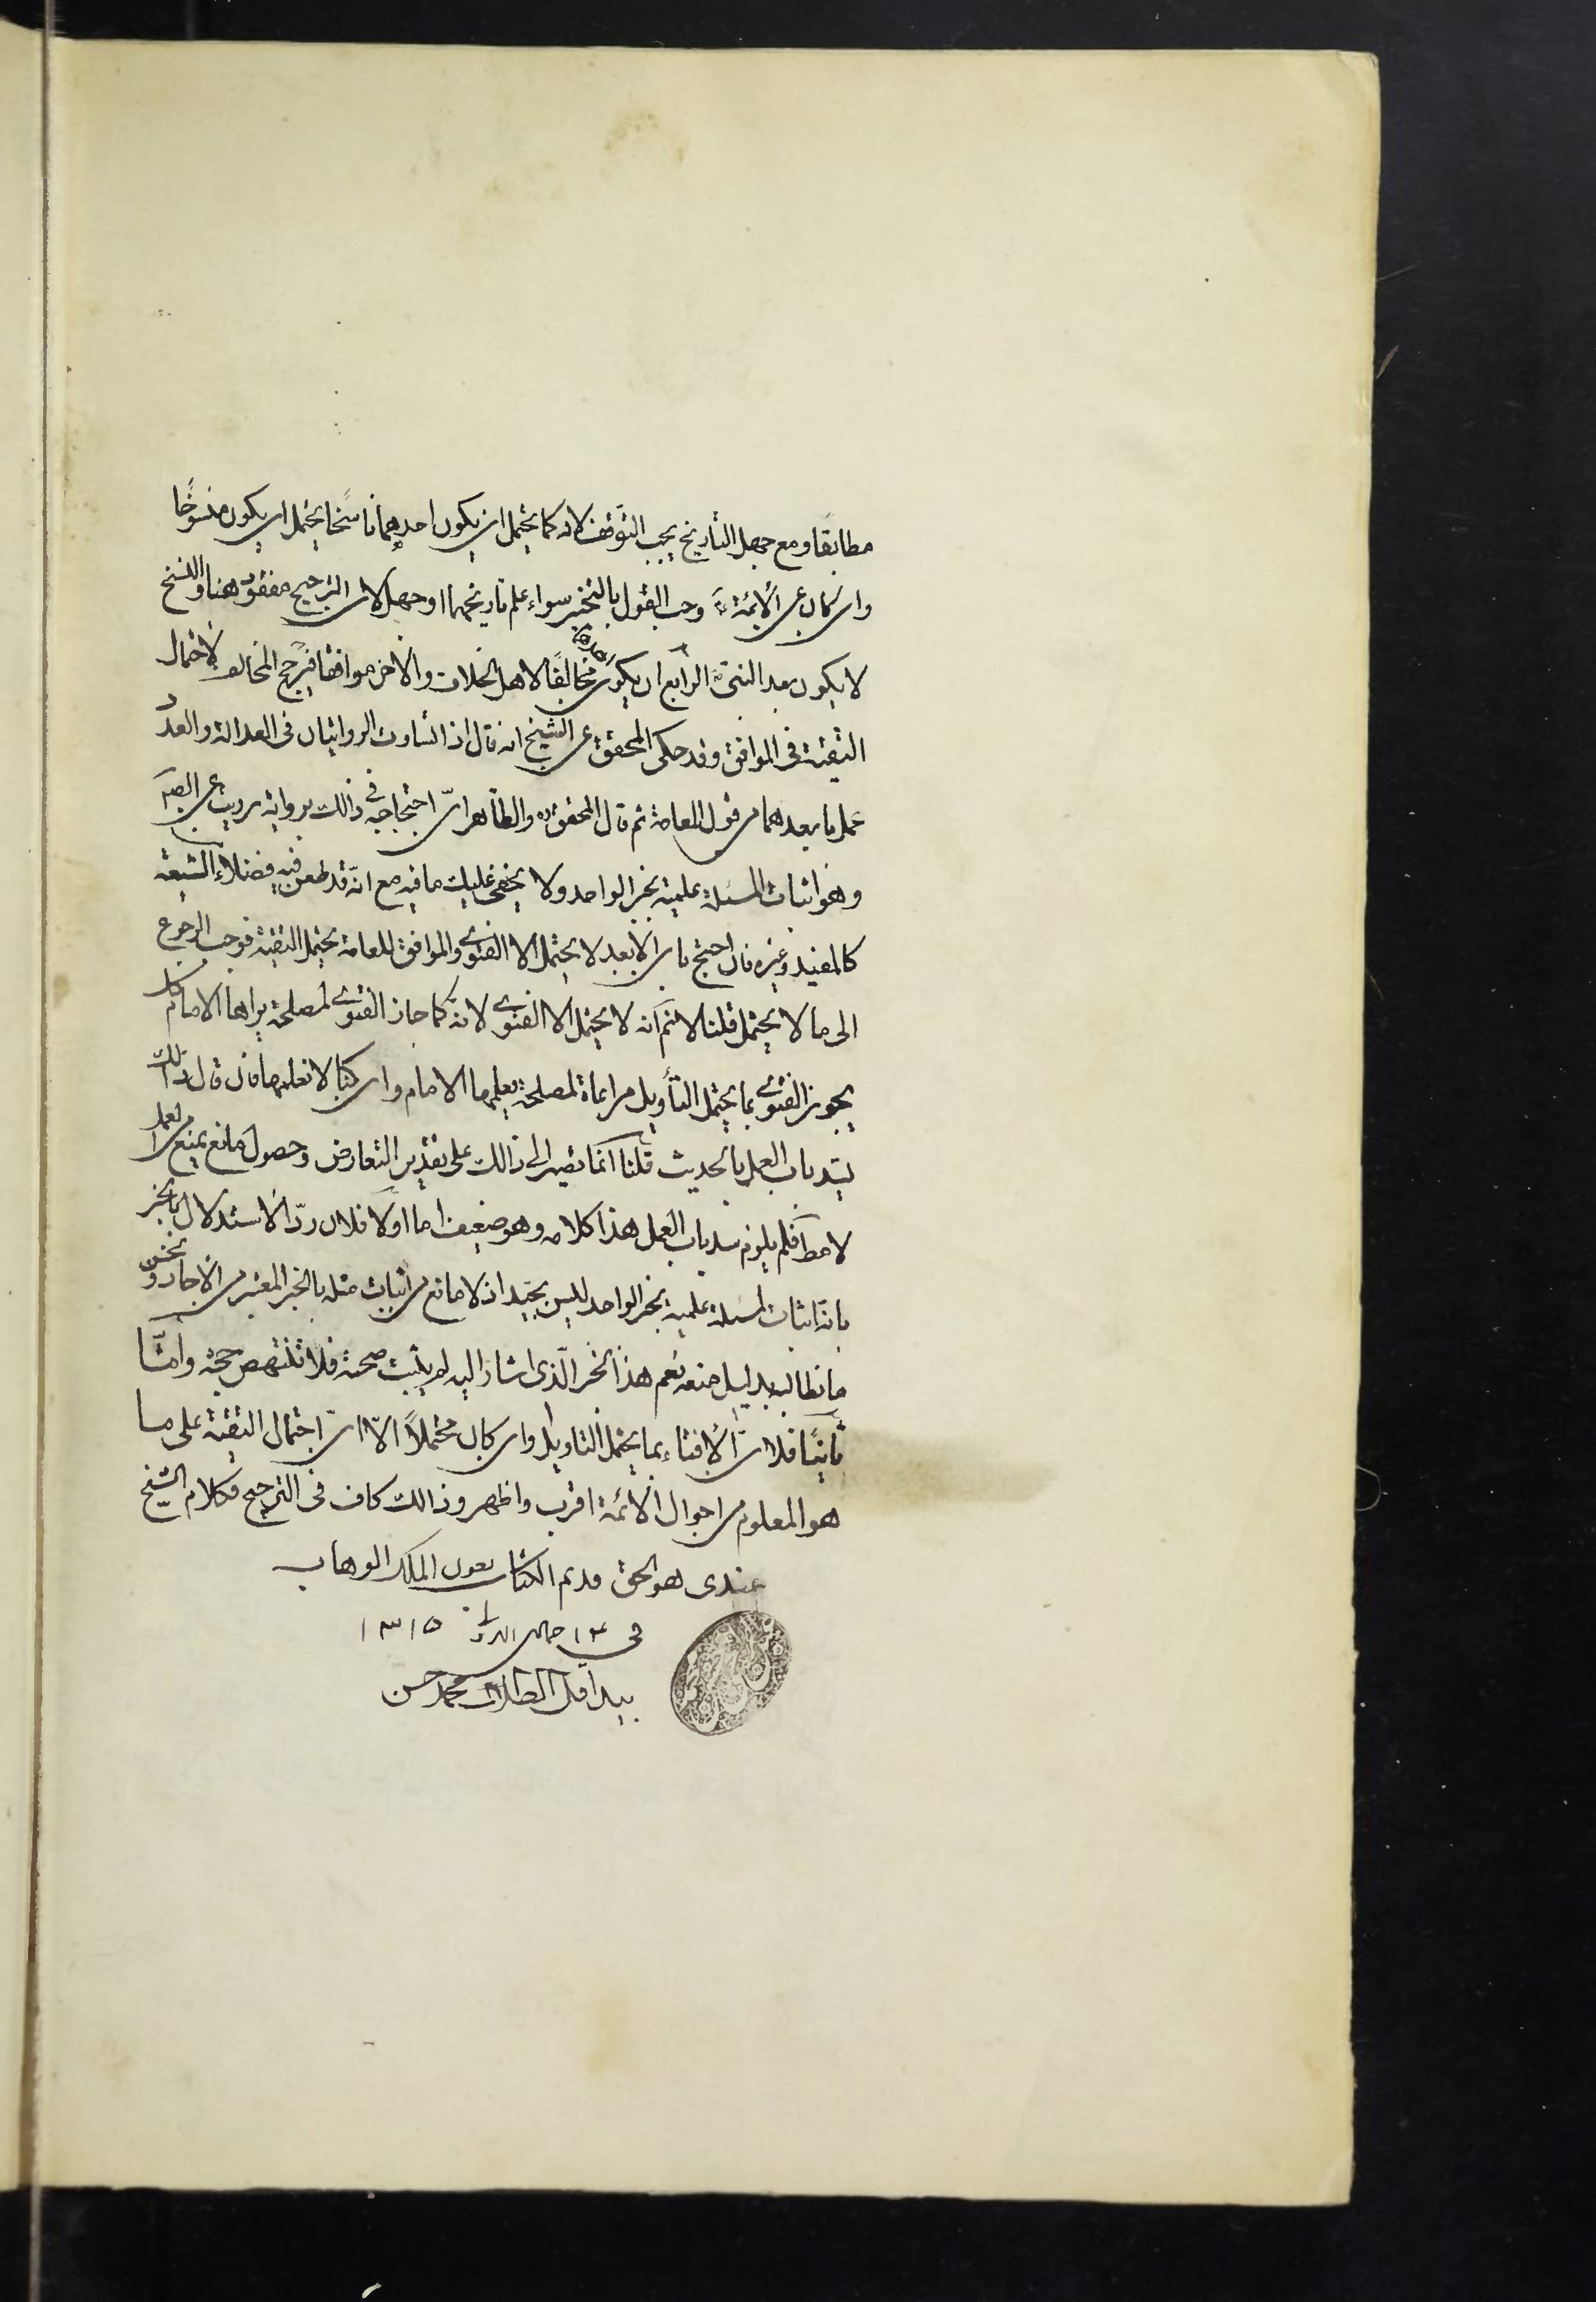 مطابقا ومع جهل التاريخ يجب التوقف لانه كما يحتمل ان يكون احدهما ناسخا يحتمل ان يكون منسوخا
وان كان عن الأئمة ع وجب القول بالتخيير سواء علم تاريخهما او جهل لان الترجيح مفقود هنا والنسخ
لا يكون بعد النبي ص الرابع ان يكون احدهما مخالفا لاهل الخلاف والاخر موافقا فيرجح المخالف لاحتمال
التقية في الموافق وقد حكى المحقق عن الشيخ انه قال اذا تساوت الروايتان في العدالة والعدد
عمل بابعدهما من قول العامة ثم قال المحقق ره والظاهر انّ احتجاجه في ذالك برواية رويت عن الصم
وهو اثبات المسئلة علمية بخبر الواحد ولا يخفى عليك ما فيه مع انّه قد طعن فيه فضلاء الشيعة
كالمفيد وغيره فان احتج بان الابعد لا يحتمل الا الفتوى والموافق للعامة يحتمل التقية فوجب الرجوع
الى ما لا يحتمل قلنا لا نم انه لا يحتمل الا الفتوى لانه كما جاز الفتوى لمصلحة يراها الامام كك
يجوز الفتوى بما يحتمل التأويل مراعاة لمصلحة يعلمها الامام وان كنا لا نعلمها فان قال ذالك
يسد باب العمل بالحديث قلنا انما نصير الى ذالك على تقدير التعارض وحصول مانع يمنع من العمل
لا مط فلم يلزم سد باب العمل هذا كلامه وهو ضعيف اما اولا فلان ردّ الاستدلال بالخبر
بانّه اثبات لمسئلة علمية بخبر الواحد ليس بجيد اذ لا مانع من اثبات مثله بالخبر المعتبر من الاحاد ونحن
ما نطالبه بدليل منعه نعم هذا الخبر الّذى اشار اليه لم يثبت صحته فلا تنتهض حجة وامّا
ثانيًا فلانّ الافتاء بما يحتمل التاويل وان كان محتملاً الّا انّ احتمال التقية على ما
هو المعلوم من احوال الائمة اقرب واظهر وذالك كاف في الترجيح فكلام الشيخ
عندى هو الحق قد تم الكتاب بعون الملك الوهاب
في ١٣ جمادى ١٣١٥
بيد اقل الطلاب محمد حسن